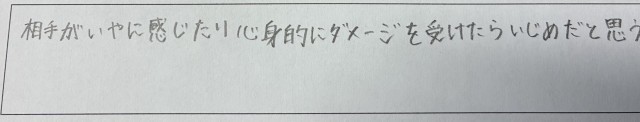 相手がいやに感じたり心身的にダメージを受けたらいじめだと思う